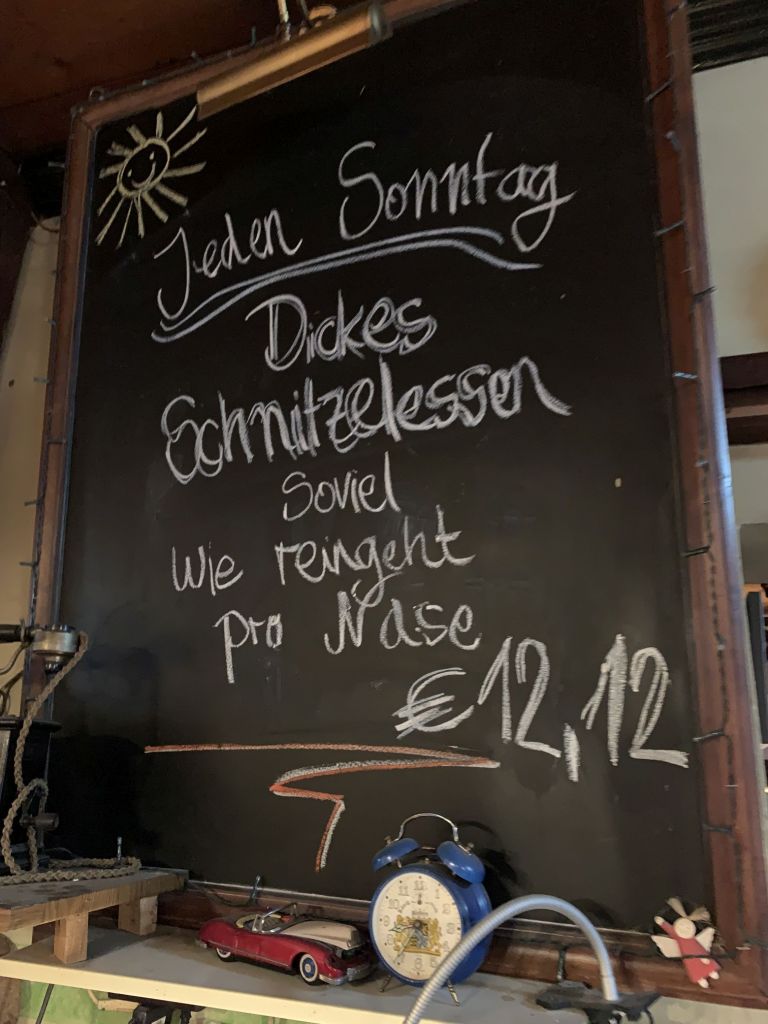 Jeden Sonntag
Dickes
Schnitzelessen
Soviel
Wie reingeht
pro Nase
€12,12